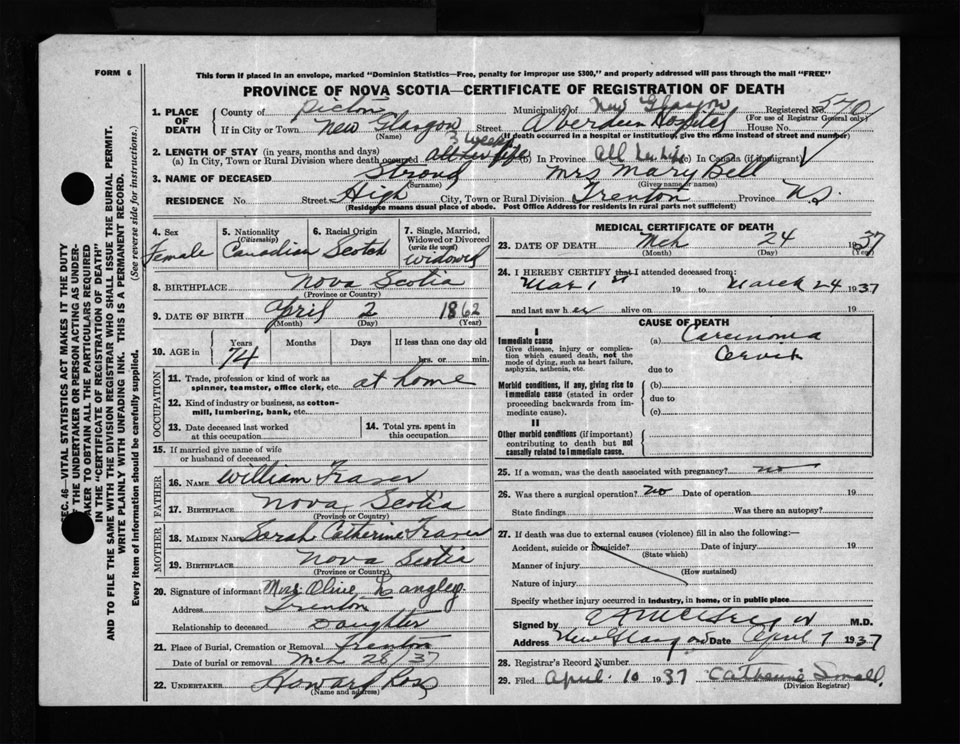 FORM 6
This form if placed in an envelope, marked "Dominion Statistics—Free, penalty for improper use $300," and properly addressed will pass through the mail "FREE"
PROVINCE OF NOVA SCOTIA—CERTIFICATE OF REGISTRATION OF DEATH
1. PLACE OF DEATH
County of Pictou Municipality of New Glasgow Registered No. 570
(For use of Registrar General only)
If in City or Town New Glasgow Street Aberdeen Hospital House No.
(Name) (If death occurred in a hospital or institution, give the name instead of street and number)
3 weeks
2. LENGTH OF STAY (in years, months and days)
(a) In City, Town or Rural Division where death occurred all her life (b) In Province All her life (c) In Canada (if immigrant)
3. NAME OF DECEASED Stroud Mrs Mary Bell
(Surname) (Given name or names)
RESIDENCE No. Street High City, Town or Rural Division Trenton Province N.S.
(Residence means usual place of abode. Post Office Address for residents in rural parts not sufficient)
4. Sex Female
5. Nationality (Citizenship) Canadian
6. Racial Origin Scotch
7. Single, Married, Widowed or Divorced (write the word) Widowed
8. BIRTHPLACE Nova Scotia
(Province or Country)
9. DATE OF BIRTH April 2 1862
(Month) (Day) (Year)
10. AGE in Years Months Days If less than one day old
74 hrs. or min.
OCCUPATION
11. Trade, profession or kind of work as spinner, teamster, office clerk, etc. at home
12. Kind of industry or business, as cotton-mill, lumbering, bank, etc.
13. Date deceased last worked at this occupation
14. Total yrs. spent in this occupation
15. If married give name of wife or husband of deceased
FATHER
16. NAME William Fraser
17. BIRTHPLACE Nova Scotia
(Province or Country)
MOTHER
18. MAIDEN NAME Sarah Catherine Fraser
19. BIRTHPLACE Nova Scotia
(Province or Country)
20. Signature of informant Mrs Olive Langley
Address Trenton
Relationship to deceased Daughter
21. Place of Burial, Cremation or Removal Trenton
Date of burial or removal Mch 28/37
22. UNDERTAKER Howard Ross
(Name and address)
MEDICAL CERTIFICATE OF DEATH
23. DATE OF DEATH Mch 24 1937
(Month) (Day) (Year)
24. I HEREBY CERTIFY that I attended deceased from:
Mar 1st 19 to March 24 1937
and last saw her alive on 19
CAUSE OF DEATH
I
Immediate cause
Give disease, injury or complication which caused death, not the mode of dying, such as heart failure, asphyxia, asthenia, etc.
(a) Carcinoma
Cervix
due to
Morbid conditions, if any, giving rise to immediate cause (stated in order proceeding backwards from immediate cause).
(b)
due to
(c)
II
Other morbid conditions (if important) contributing to death but not causally related to immediate cause.
25. If a woman, was the death associated with pregnancy? no
26. Was there a surgical operation? no Date of operation 19
State findings Was there an autopsy?
27. If death was due to external causes (violence) fill in also the following:—
Accident, suicide or homicide? Date of injury 19
(State which)
Manner of injury
(How sustained)
Nature of injury
Specify whether injury occurred in industry, in home, or in public place
Signed by M.D.
Address New Glasgow Date April 7 1937
28. Registrar's Record Number
29. Filed April 10 1937 Catherine Small
(Division Registrar)
SEC. 46—VITAL STATISTICS ACT MAKES IT THE DUTY
OF THE UNDERTAKER OR PERSON ACTING AS UNDERTAKER TO OBTAIN ALL THE PARTICULARS REQUIRED
IN THE "CERTIFICATE OF REGISTRATION OF DEATH"
AND TO FILE THE SAME WITH THE DIVISION REGISTRAR WHO SHALL ISSUE THE BURIAL PERMIT.
WRITE PLAINLY WITH UNFADING INK. THIS IS A PERMANENT RECORD.
Every item of information should be carefully supplied. (See reverse side for instructions.)